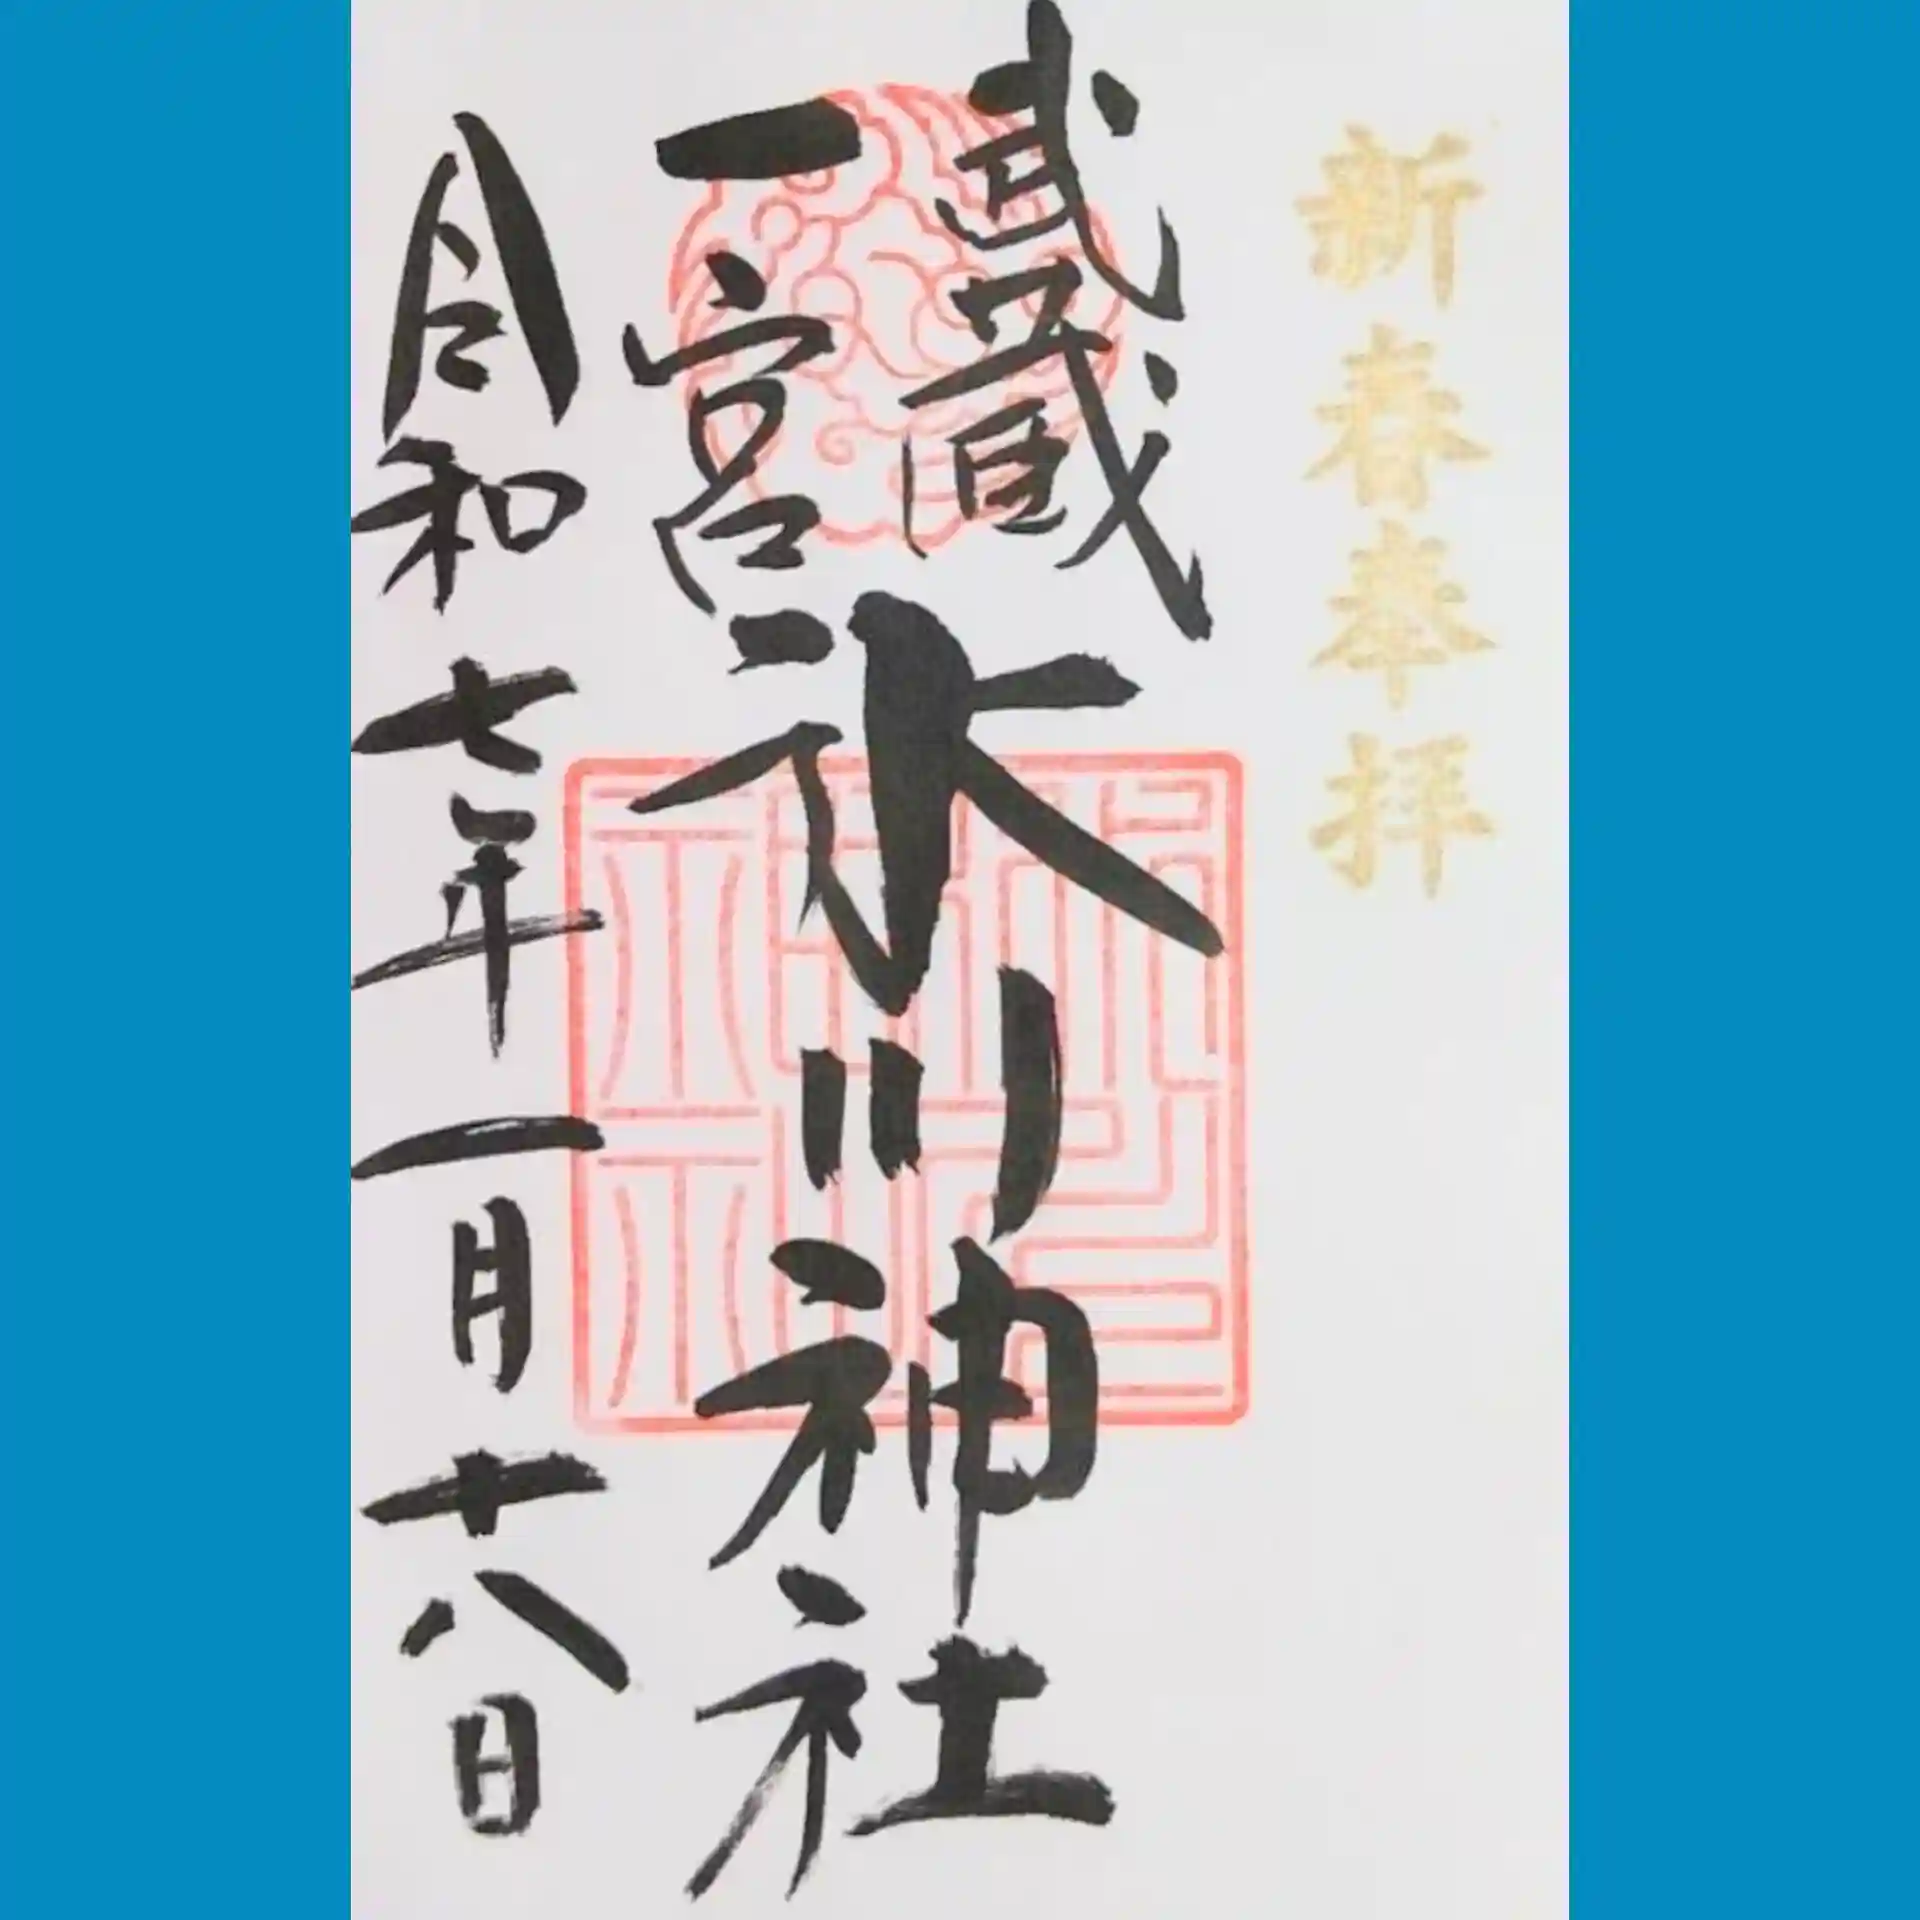 新春奉拝
武蔵
一宮
氷川神社
令和七年一月十八日